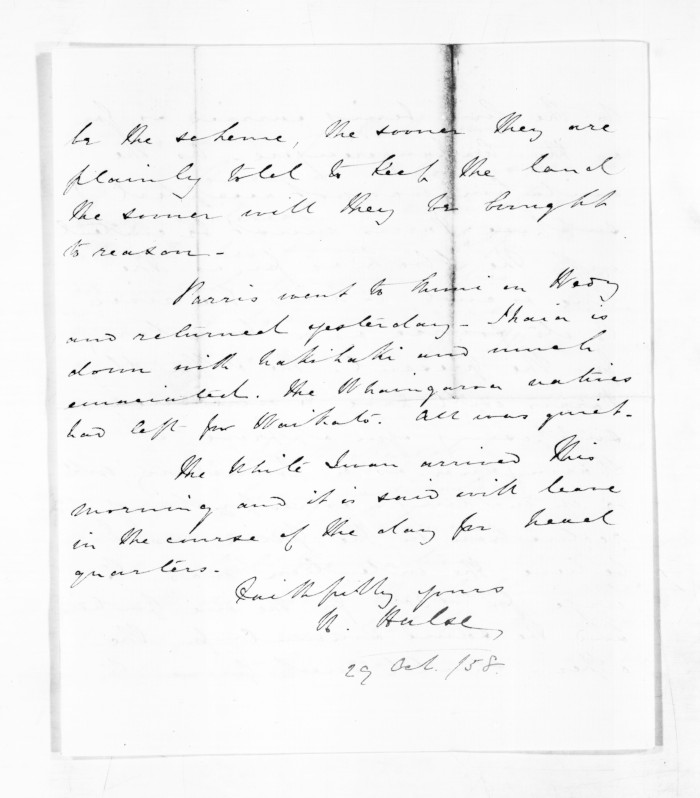 be the scheme, the sooner they are
plainly told to keep the land
the sooner will they be brought
to reason -
Parris went to Mimi on Wedy
and returned yesterday - Ihaia is
down with hakihaki and much
emaciated. The Whaingaroa natives
had left for Waikato. All was quiet -
The White Swan arrived this
morning and it is said will leave
in the course of the day for head
quarters.
Faithfully yours
Halse
29 Oct. /58.